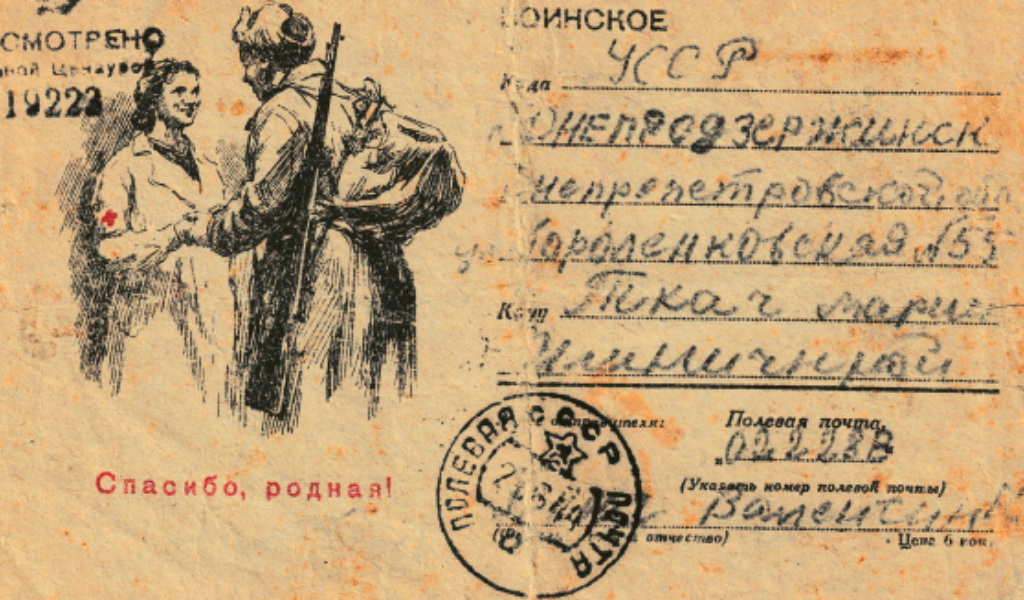 СМОТРЕНО
ной Цензурой
19222
ВОИНСКОЕ
УССР
Куда
г. ДНЕПРОДЗЕРЖИНСК
Днепропетровской обл
ул Короленковская №55
Кому Ткач Марии
Спасибо, родная!
ПОЛЕВАЯ ПОЧТА СССР
44
отправителя:
Полевая почта
02228В
(Указать номер полевой почты)
Валентин
отчество)
Цена 6 коп.